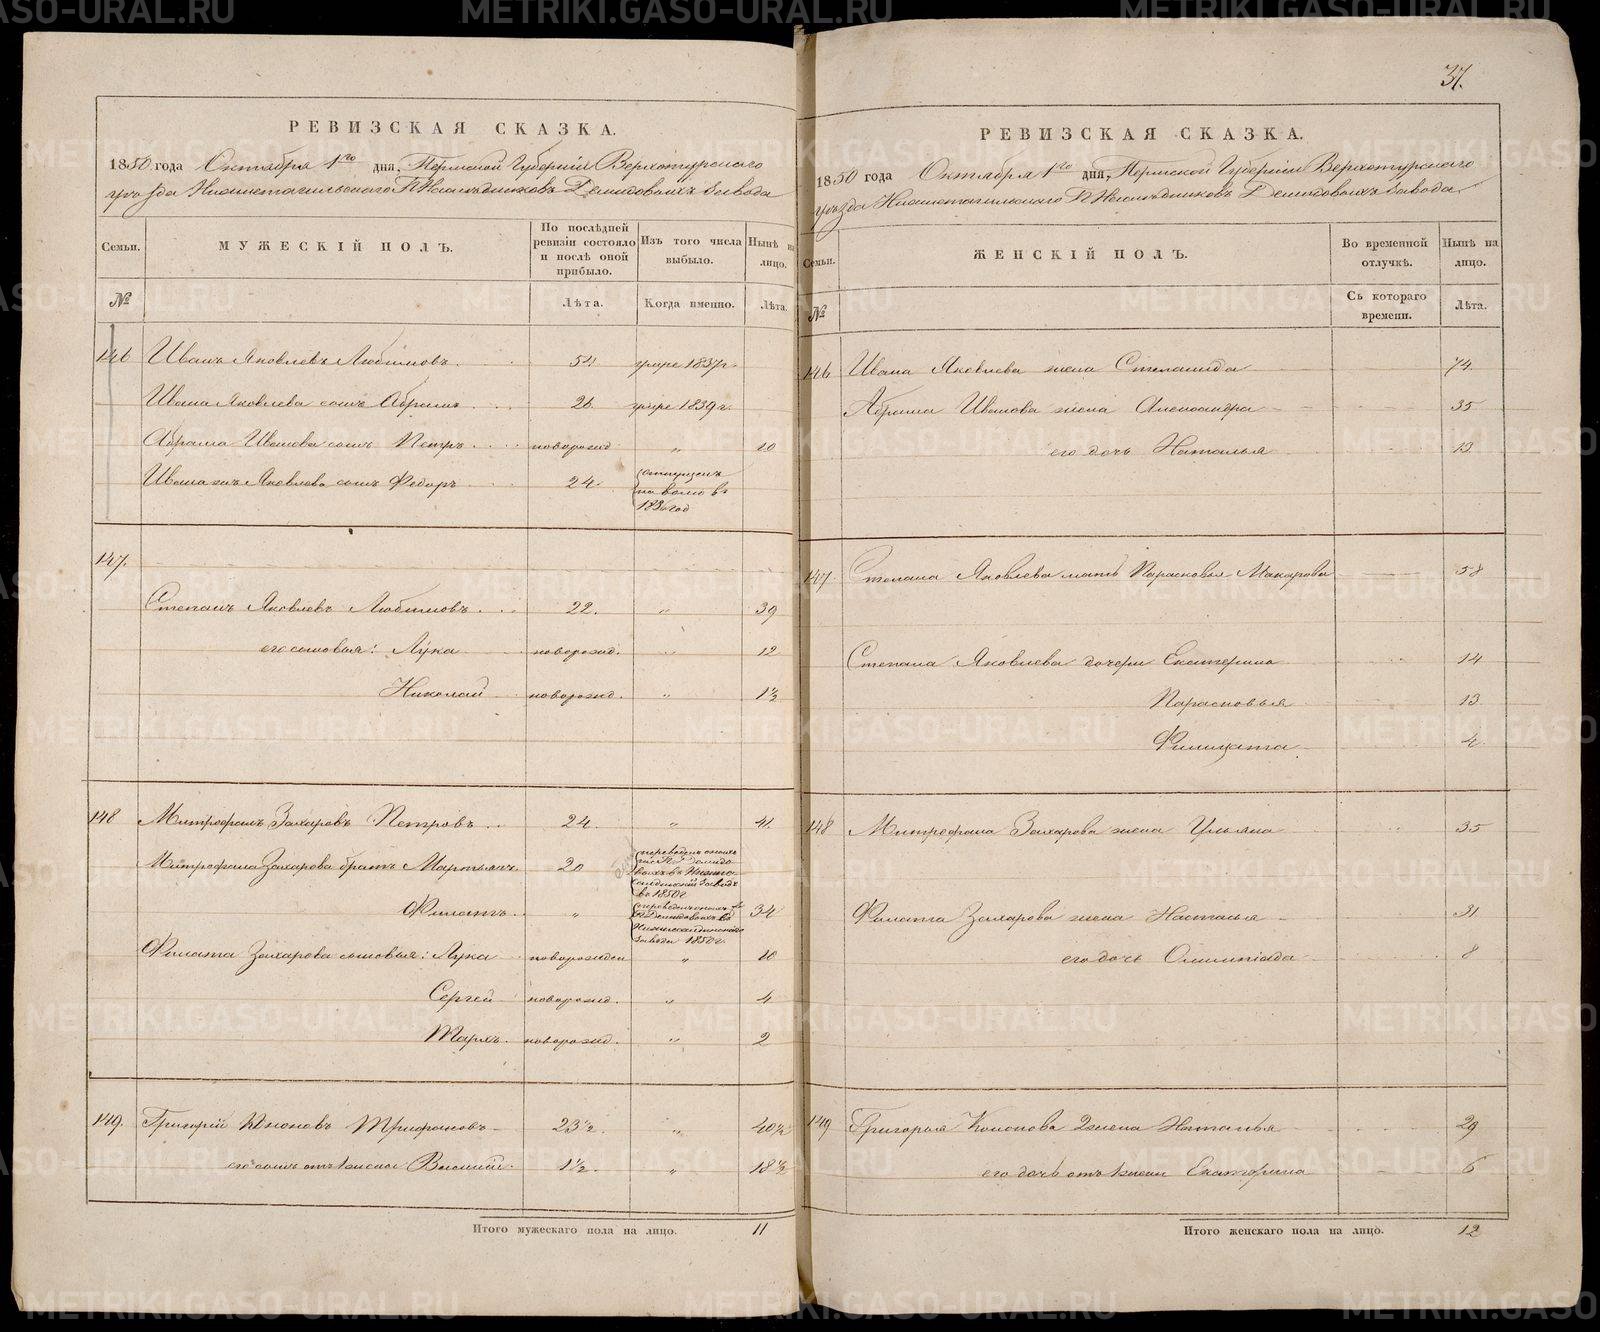 37.
РЕВИЗСКАЯ СКАЗКА.
1850 года Октября 1го дня, Пермской Губернiи Верхотурскаго
уѣзда Нижнетагильскаго Г.Г. Наслѣдниковъ Демидовыхъ Завода
Семьи.
МУЖЕСКІЙ ПОЛЪ.
По послѣдней ревизіи состояло и послѣ оной прибыло.
Изъ того числа выбыло.
Нынѣ на лицо.
№
Лѣта.
Когда именно.
Лѣта.
146 Иванъ Яковлевъ Любимовъ 54 умре 1837 г.
Ивана Яковлева сынъ Абрамъ 26 умре 1839 г.
Абрама Иванова сынъ Петръ новорожд. „ 10
Ивана Яковлева сынъ Федоръ 24. отпущенъ
на волю въ
183 год
147.
Степанъ Яковлевъ Любимовъ 22. „ 39
его сыновья: Лука новорожд. „ 12
Николай новорожд. „ 1½
148 Митрофанъ Захаровъ Петровъ 24. „ 41.
Митрофана Захарова братъ Мартьянъ 20 переведенъ
въ 1850 г.
Филатъ „ 34
завода 1850 г.
Филата Захарова сыновья: Лука новорожден „ 10
Сергей новорожд. „ 4
Тархъ новорожд. „ 2
149. Григорій Кононовъ Трифоновъ 23½. „ 40½
его сынъ отъ 1 жены Василій 1½. „ 18½
Итого мужескаго пола на лицо. 11
РЕВИЗСКАЯ СКАЗКА.
1850 года Октября 1го дня, Пермской Губернiи Верхотурскаго
уѣзда Нижнетагильскаго Г.Г. Наслѣдниковъ Демидовыхъ Завода
Семьи.
ЖЕНСКІЙ ПОЛЪ.
Во временной отлучкѣ.
Нынѣ на лицо.
№
Съ котораго времени.
Лѣта.
146 Ивана Яковлева жена Степанида 74.
Абрама Иванова жена Александра 35
его дочь Наталья 13.
147 Степана Яковлева мать Парасковья Макарова 58
Степана Яковлева дочери Екатерина 14
Парасковья 13
Филицата 4
148 Митрофана Захарова жена Ульяна 35
Филата Захарова жена Настасья 31
его дочь Олимпіада 8
149 Григорья Кононова 2 жена Наталья 29
его дочь отъ 1 жены Екатерина 6
Итого женскаго пола на лицо. 12
METRIKI.GASO-URAL.RU